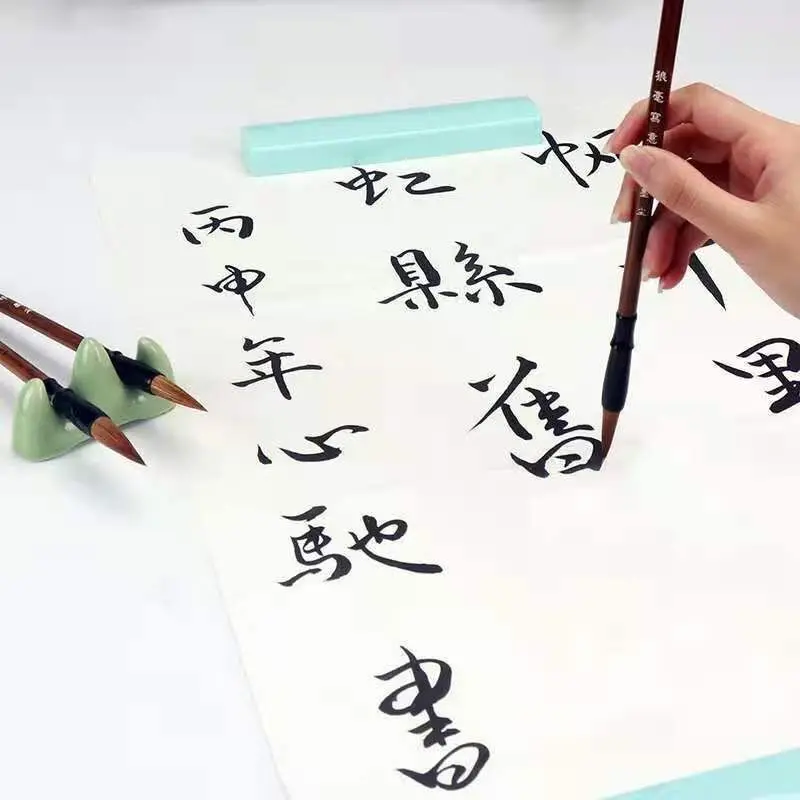 帆千里
虹縣舊
丙申年心馳書
狼毫寫意